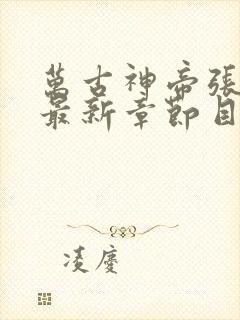 萬古神帝張
最新章節目
凌慶